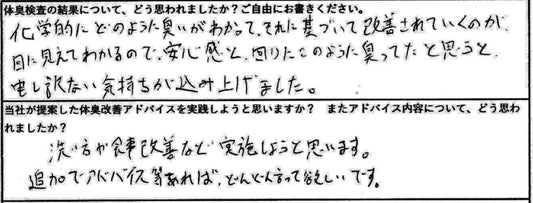 体臭検査の結果について、どう思われましたか？ご自由にお書きください。
化学的にどのように臭いがわかって、それに基づいて改善されていくのが
目に見えてわかるので、安心感と、回りにこのように臭ってたと思うと、
申し訳ない気持ちが込み上げました。
当社が提案した体臭改善アドバイスを実践しようと思いますか？　またアドバイス内容について、どう思わ
れましたか？
洗い方が食事改善など実施しようと思います。
追加でアドバイス等あれば、どんどん言って欲しいです。